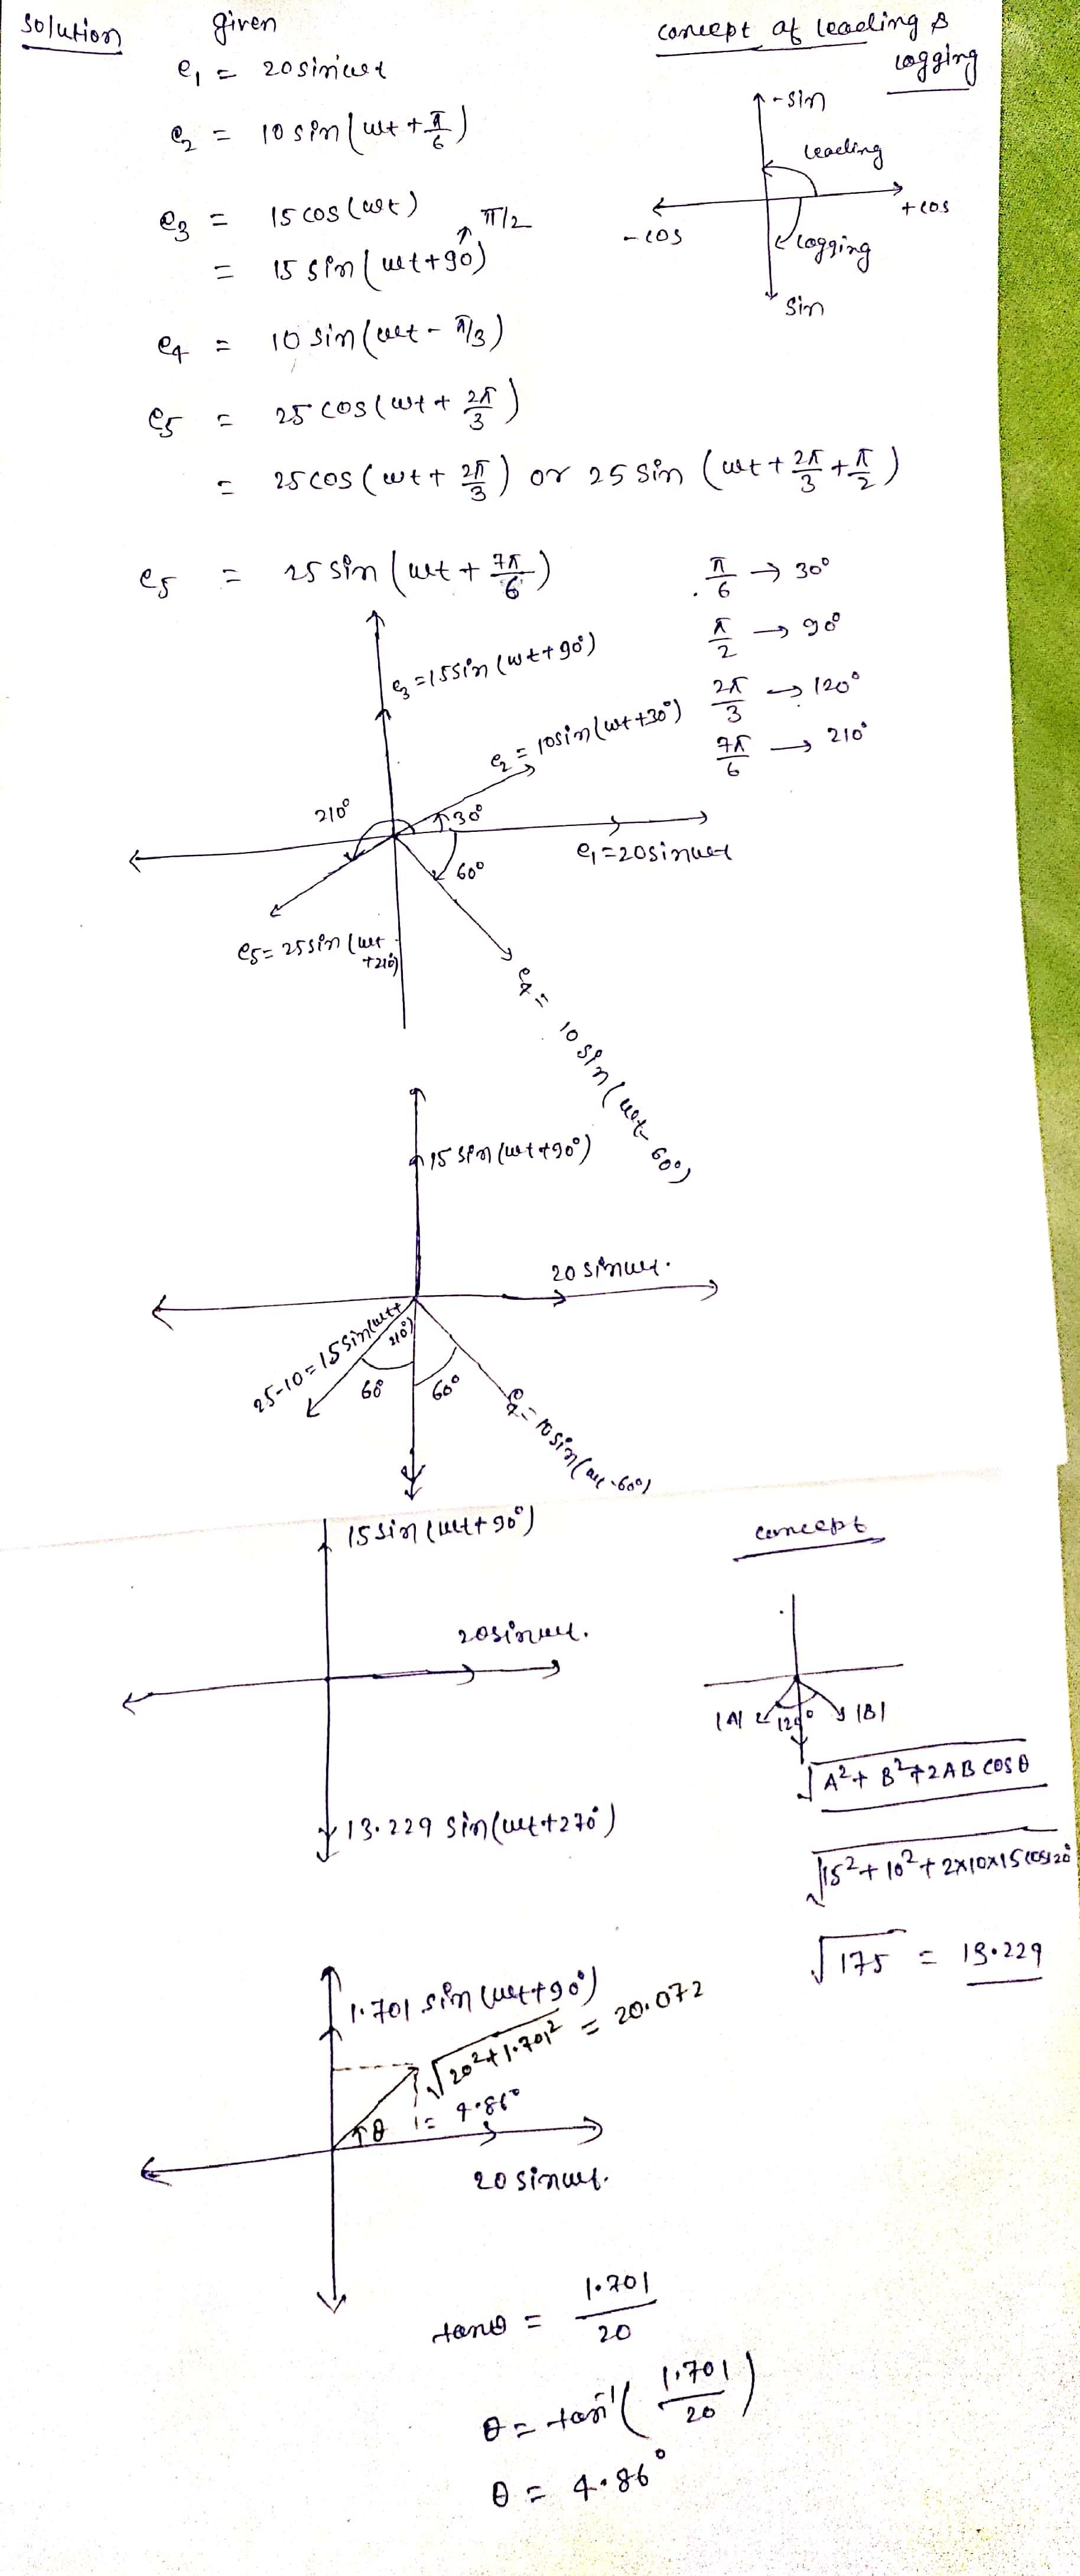 solution given
e1 = 20 sin ωt
e2 = 10 sin (ωt + π/6)
e3 = 15 cos (ωt)
π/2
= 15 sin (ωt + 90)
e4 = 10 sin (ωt - π/3)
e5 = 25 cos (ωt + 2π/3)
= 25 cos (ωt + 2π/3) or 25 sin (ωt + 2π/3 + π/2)
e5 = 25 sin (ωt + 7π/6)
concept of leading &
lagging
-sin
leading
+cos
-cos
lagging
sin
π/6 → 30°
π/2 → 90°
2π/3 → 120°
7π/6 → 210°
e3 = 15 sin (ωt + 90°)
e2 = 10 sin (ωt + 30°)
210°
30°
e1 = 20 sin ωt
60°
e5 = 25 sin (ωt
+ 210)
e4 = 10 sin (ωt - 60°)
15 sin (ωt + 90°)
20 sin ωt.
25-10 = 15 sin (ωt +
210°)
60
60°
e4 = 10 sin (ωt - 60°)
15 sin (ωt + 90°)
20 sin ωt.
13.229 sin (ωt + 270°)
concept
|A| 120° |B|
√A² + B² + 2AB cos θ
√15² + 10² + 2×10×15 cos 120
√175 = 13.229
1.701 sin (ωt + 90°)
√20² + 1.701² = 20.072
θ = 4.86°
20 sin ωt.
tan θ = 1.701/20
θ = tan⁻¹ (1.701/20)
θ = 4.86°